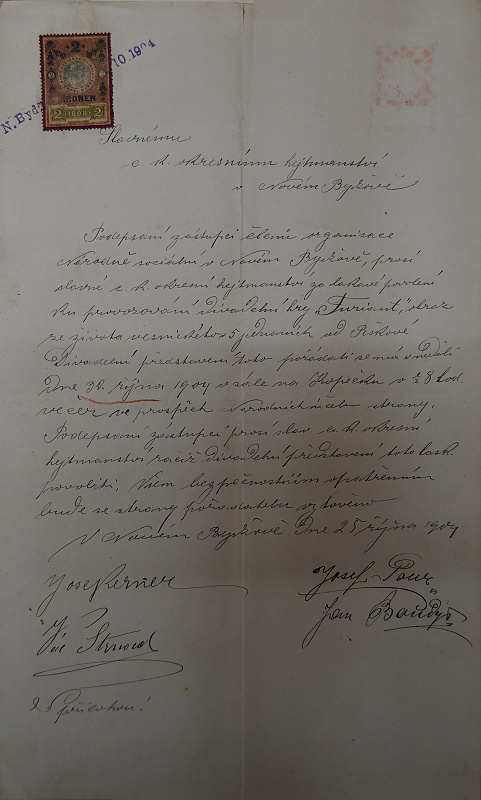 N. Bydž 10.1904
2
KRONEN
2 1898 2
Slavnému
c. k. okresnímu hejtmanství
v Novém Bydžově
Podepsaní zástupci členů organisace
Národně sociální v Novém Bydžově, prosí
slavné c. k. okresní hejtmanství za laskavé povolení
ku provozování divadelní hry „Furiant", obraz
ze života vesnického v 5 jednáních od Piškové
Divadelní představení toto pořádati se má v neděli
Dne 30. října 1904 v sále na Kopečku v ½ 8 hod.
večer ve prospěch Národních účelů strany.
Podepsaní zástupci prosí slav. c. k. okresní
hejtmanství račiž divadelní představení toto lask.
povoliti. Všem bezpečnostním opatřením
bude se strany pořadatelů vyhověno
V Novém Bydžově Dne 25 října 1904
Josef Pour
Jan